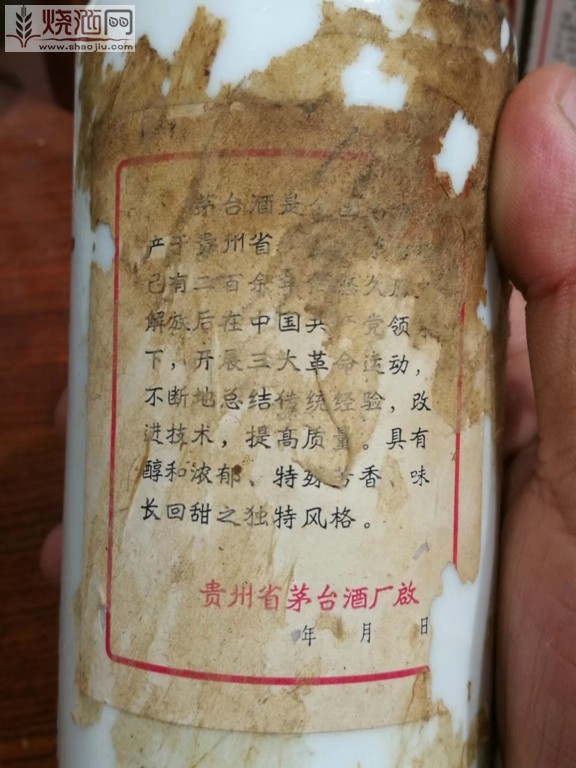 烧酒网
www.shaojiu.com
茅台酒是
产于贵州省
已有二百余年 悠久历
解放后在中国共产党领
下，开展三大革命运动，
不断地总结传统经验，改
进技术，提高质量。具有
醇和浓郁、特殊芳香、味
长回甜之独特风格。
贵州省茅台酒厂啟
年 月 日